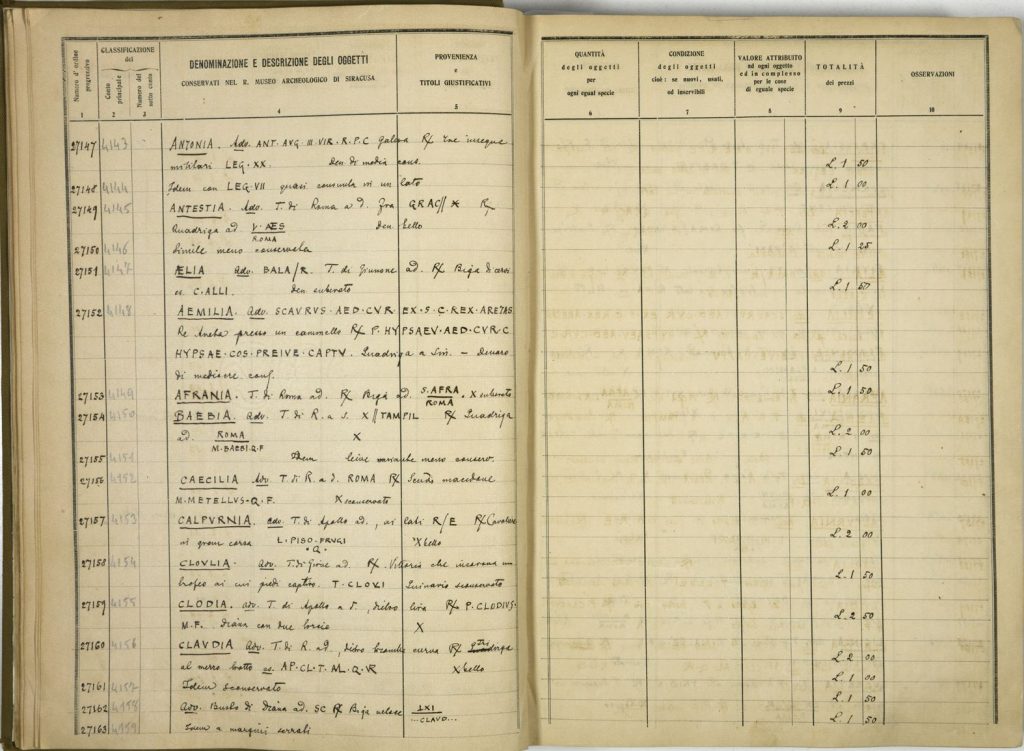 Numero d'ordine progressivo
CLASSIFICAZIONE del
Conto principale
Numero del sotto conto
DENOMINAZIONE E DESCRIZIONE DEGLI OGGETTI
CONSERVATI NEL R. MUSEO ARCHEOLOGICO DI SIRACUSA
PROVENIENZA
e
TITOLI GIUSTIFICATIVI
QUANTITÀ
degli oggetti
per
ogni egual specie
CONDIZIONE
degli oggetti
cioè: se nuovi, usati,
od inservibili
VALORE ATTRIBUITO
ad ogni oggetto
ed in complesso
per le cose
di eguale specie
TOTALITÀ
dei prezzi
OSSERVAZIONI
1 2 3 4 5 6 7 8 9 10
27147 4143 ANTONIA. Adv. ANT. AVG. III VIR. R. P. C Galera R/ Tre insegne
militari LEG. XX. Den. di media cons. L. 1 50
27148 4144 Idem con LEG. VII quasi consunta in un lato L. 1 00
27149 4145 ANTESTIA. Adv. T. di Roma a d. fra GRAC// X R/
Quadriga ad. den. bello L. 2 00
ROMA
27150 4146 Simile meno conservata L. 1 25
27151 4147 ÆLIA adv. BALA/R. T. di Giunone ad. R/ Biga di cervi
es. C. ALLI. den. suberato L. 1 50
27152 4148 AEMILIA. Adv. SCAVRVS. AED. CVR. EX. S. C. REX. ARETAS
Re Areta presso un cammello R/ P. HYPSAEV. AED. CVR. C
HYPSAE. COS. PREIVE. CAPTV. Quadriga a Sin. - Denaro
di mediocre cons. L. 1 50
27153 4149 AFRANIA. T. di Roma ad. R/ Biga ad. S. AFRA X suberato L. 1 50
ROMA
27154 4150 BAEBIA. adv. T. di R. a S. X // TAMPIL R/ Quadriga
ad. ROMA X L. 2 00
M. BAEBI. Q. F
27155 4151 Idem lieve variante meno conserv. L. 1 50
27156 4152 CAECILIA Adv T. di R. a d. ROMA R/ Scudo macedone
M. METELLVS. Q. F. X sconservato L. 1 00
27157 4153 CALPVRNIA. adv. T. di Apollo ad., ai lati R/E R/ Cavaliere
in gran corsa L. PISO. FRUGI X bello L. 2 00
. Q .
27158 4154 CLOVLIA. adv. T. di Giove ad R/ Vittoria che incorona un
trofeo ai cui piedi captivo. T. CLOVI Quinario sconservato L. 1 50
27159 4155 CLODIA. adv. T. di Apollo a d., dietro lira R/ P. CLODIVS.
M. F. Diana con due torcie X L. 2 50
27160 4156 CLAVDIA Adv. T. di R. ad., dietro curva R/ Triga
al mezzo trotto es. AP. CL. T. AL. Q. VR X bello L. 2 00
27161 4157 Idem sconservato L. 1 00
27162 4158 Adv. Busto di Diana ad. SC R/ Biga veloce LXI L. 1 50
...CLAVD...
27163 4159 Idem a margini serrati L. 1 50